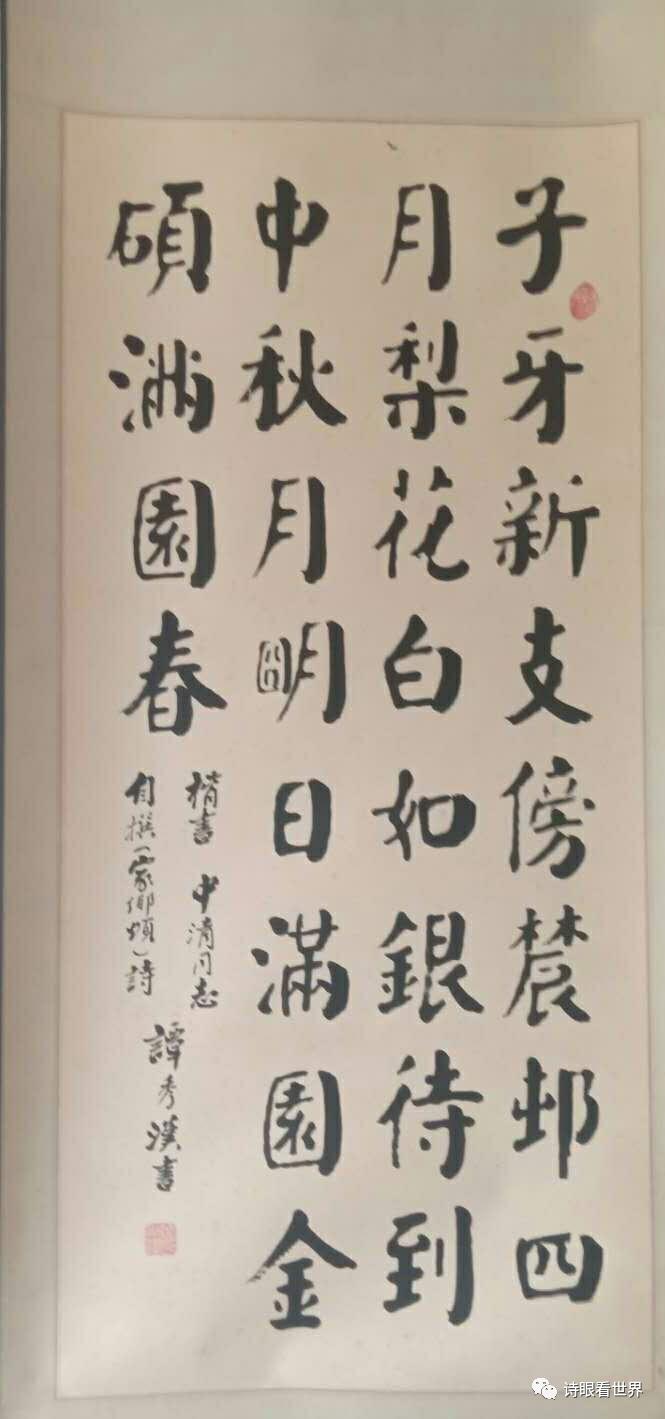 子牙新支傍辳邨四
月梨花白如銀待到
中秋月朙日滿園金
碩滿園春
楷書 中清同志
自撰（家鄉頌）詩
譚秀漢書
诗眼看世界